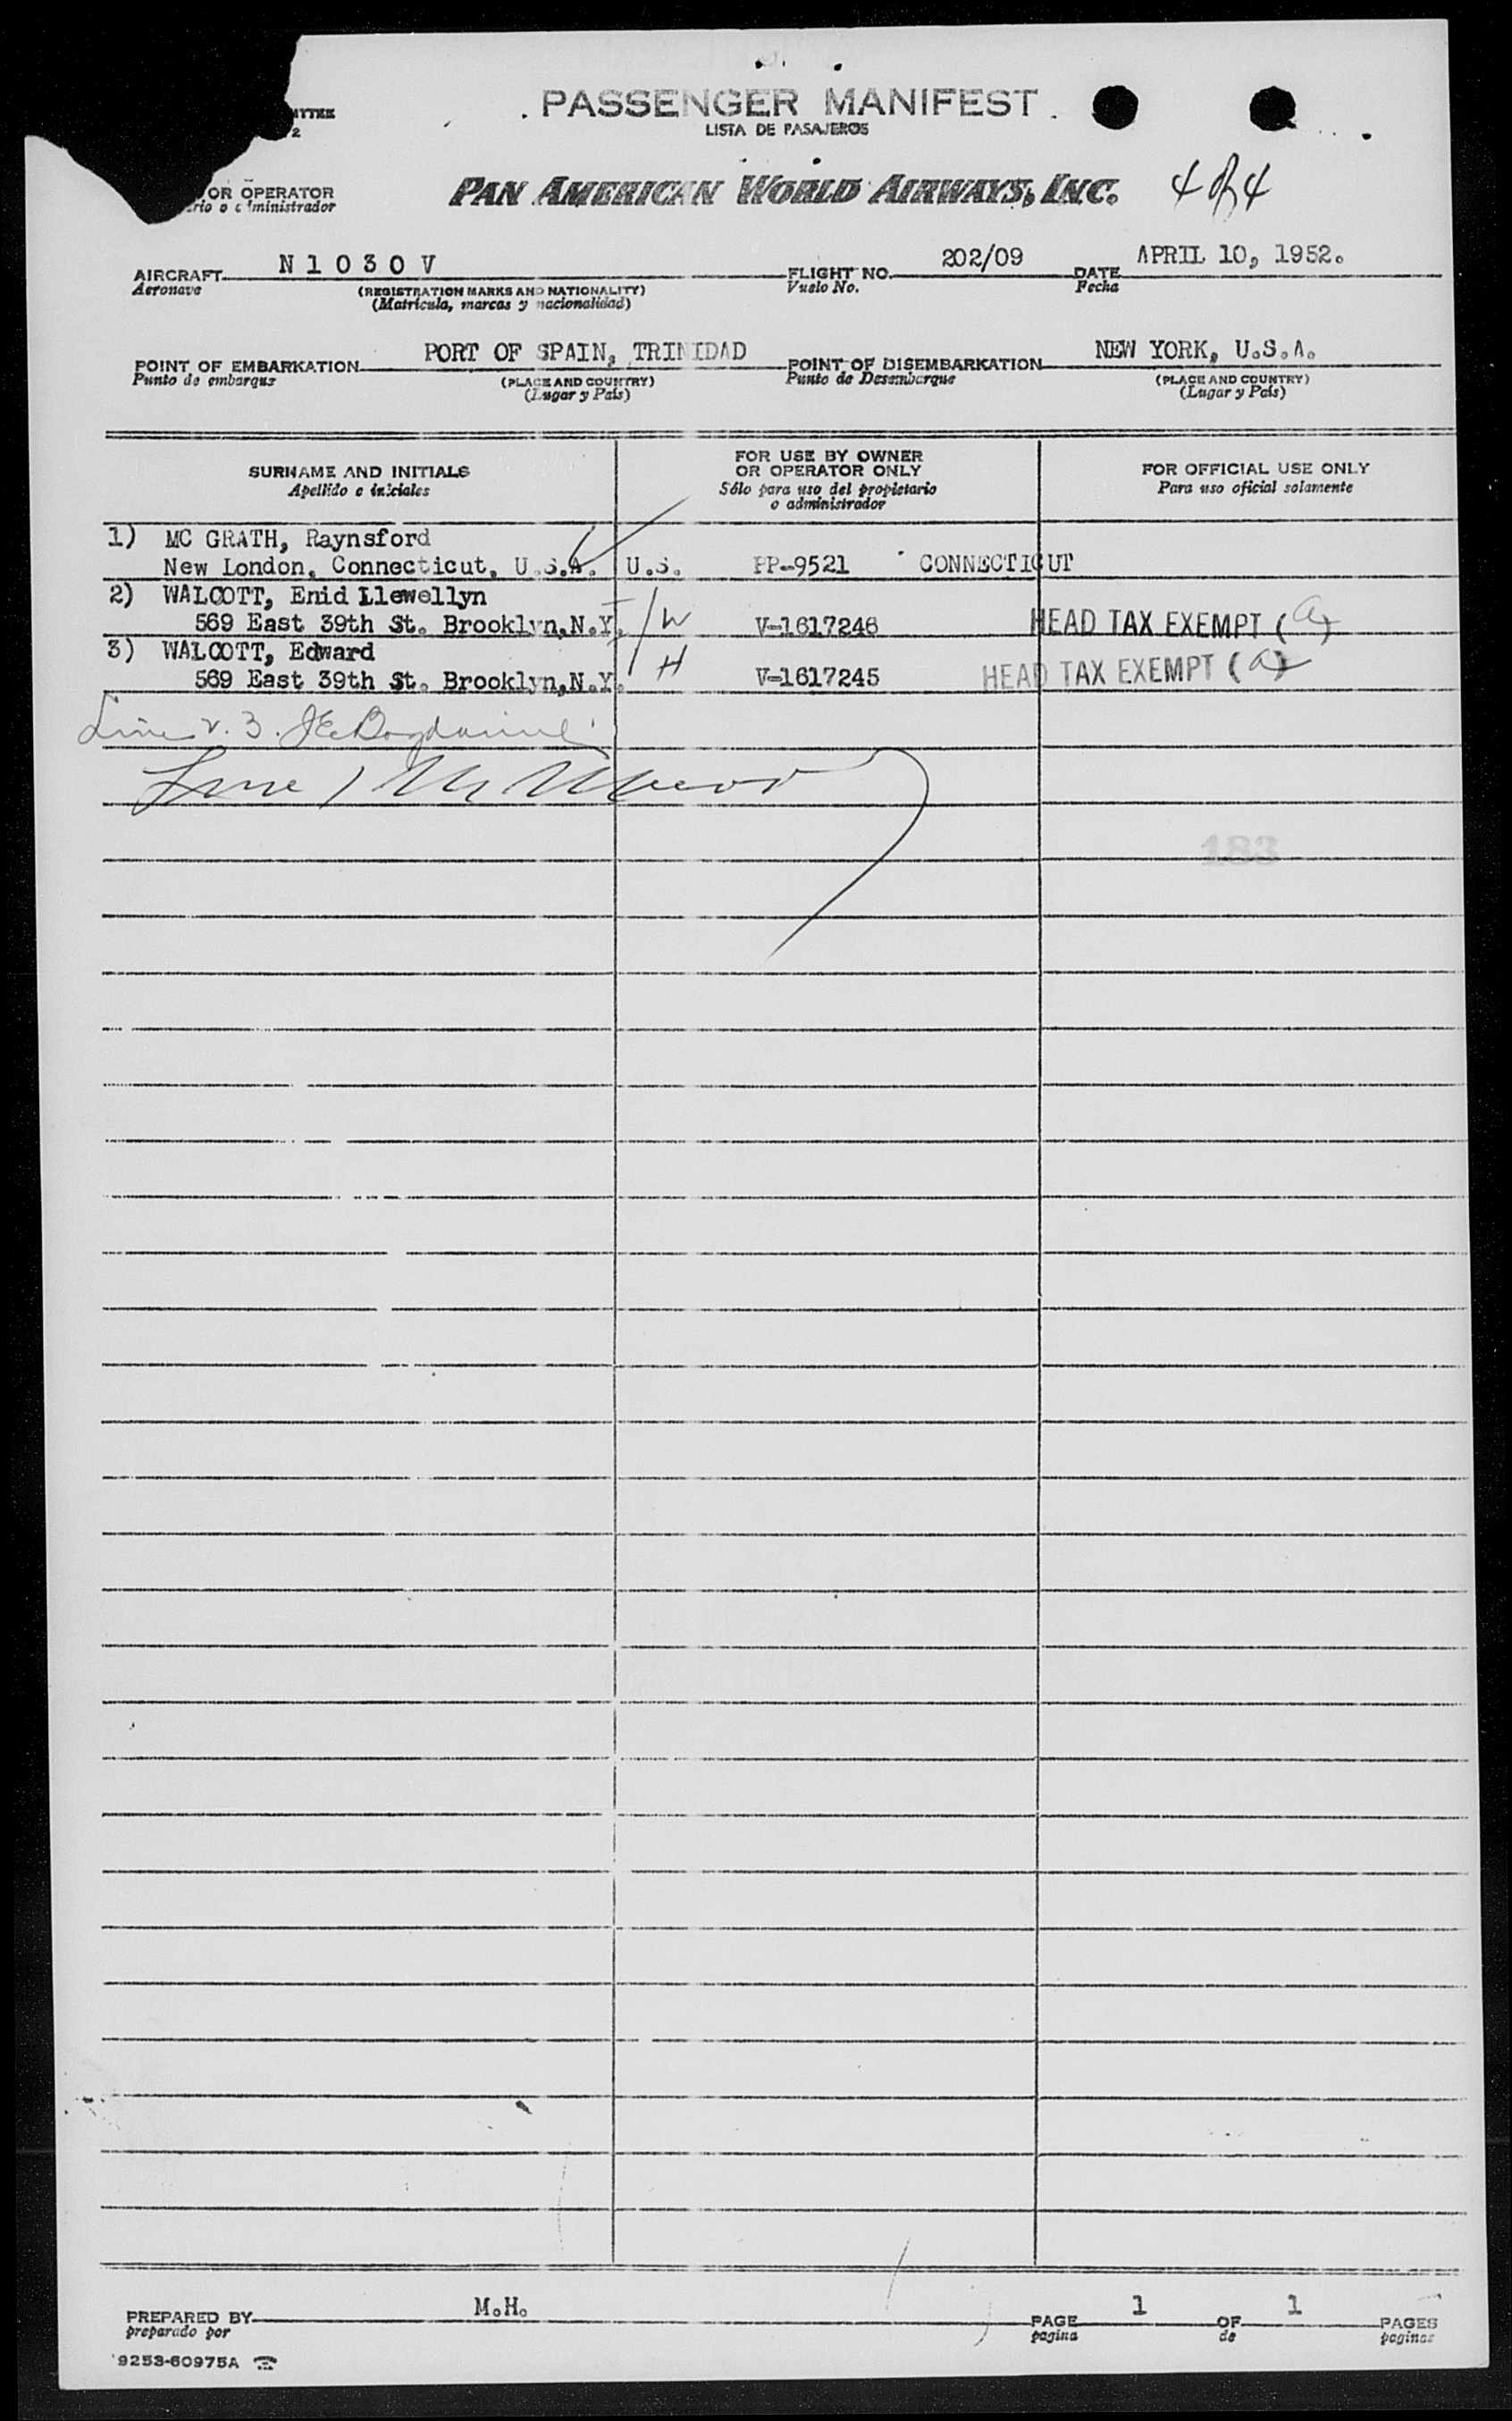 PASSENGER MANIFEST
LISTA DE PASAJEROS
2
OR OPERATOR
PAN AMERICAN WORLD AIRWAYS, INC.
4 of 4
AIRCRAFT N 1 0 3 0 V FLIGHT NO. 202/09 DATE APRIL 10, 1952.
Aeronave (REGISTRATION MARKS AND NATIONALITY) Vuelo No. Fecha
(Matricula, marcas y nacionalidad)
POINT OF EMBARKATION PORT OF SPAIN, TRINIDAD POINT OF DISEMBARKATION NEW YORK, U.S.A.
Punto de embarque (PLACE AND COUNTRY) Punto de Desembarque (PLACE AND COUNTRY)
(Lugar y País) (Lugar y País)
SURNAME AND INITIALS
Apellido e iniciales
FOR USE BY OWNER
OR OPERATOR ONLY
Sólo para uso del propietario
o administrador
FOR OFFICIAL USE ONLY
Para uso oficial solamente
1) MC GRATH, Raynsford
New London, Connecticut, U.S.A. U.S. PP-9521 CONNECTICUT
2) WALCOTT, Enid Llewellyn
569 East 39th St. Brooklyn,N.Y. W V-1617246 HEAD TAX EXEMPT (a)
3) WALCOTT, Edward
569 East 39th St. Brooklyn,N.Y. H V-1617245 HEAD TAX EXEMPT (a)
Line 2. 3.
Line 1
183
PREPARED BY M.H. PAGE 1 OF 1 PAGES
preparado por pagina de paginas
9253-60975A